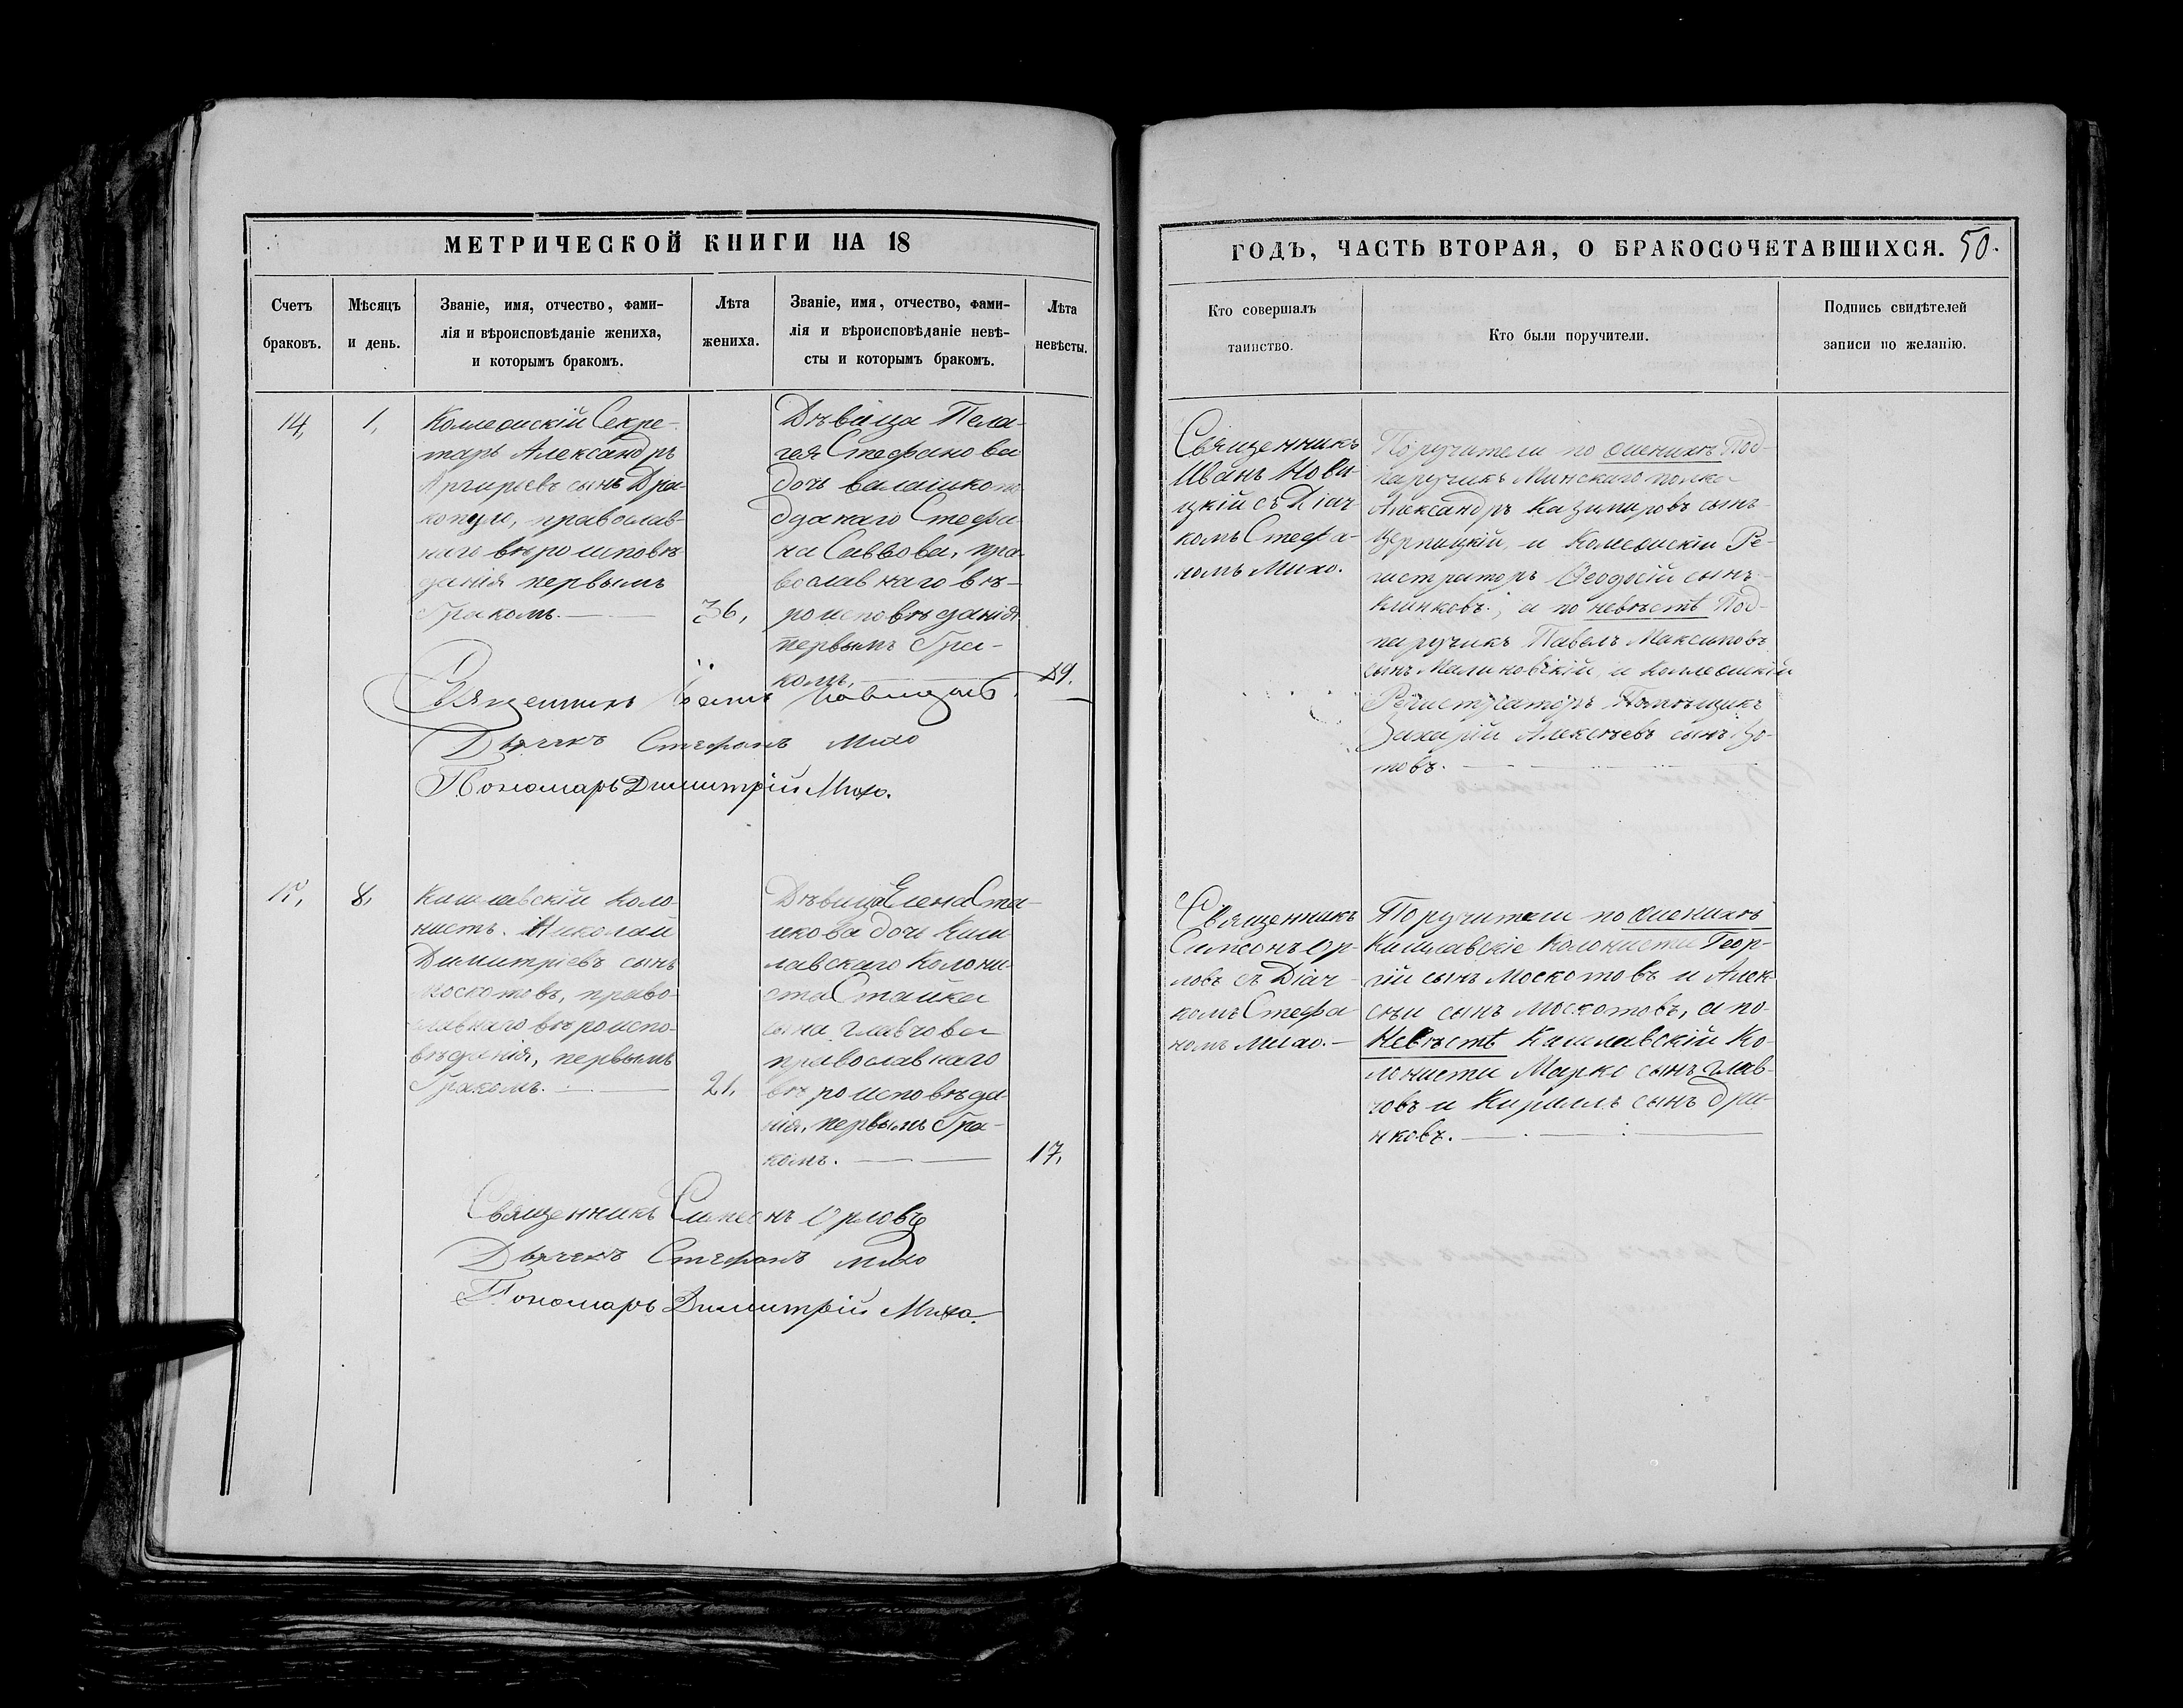 МЕТРИЧЕСКОЙ КНИГИ НА 18
Счетъ браковъ.
Мѣсяцъ и день.
Званіе, имя, отчество, фами-
лія и вѣроисповѣданіе жениха,
и которымъ бракомъ.
Лѣта жениха.
Званіе, имя, отчество, фами-
лія и вѣроисповѣданіе невѣ-
сты и которымъ бракомъ.
Лѣта невѣсты.
14,
1,
Коллежскій Секре-
тарь Александръ
Аргирьевъ сынъ Дра-
копули, православ-
наго вѣроисповѣ-
данія первымъ
бракомъ.
36,
Дѣвица Пела-
гея Стефанова
дочь
Стефа-
на Саввова, пра-
вославнаго вѣ-
роисповѣданія
первымъ бра-
комъ.
19.
Священникъ Іоаннъ Новицкій
Дьячекъ Стефанъ Михо
Пономарь Димитрій Михо.
15,
8,
Кишлавскій Коло-
нистъ Николай
Димитріевъ сынъ
Москотовъ, право-
славнаго вѣроиспо-
вѣданія, первымъ
бракомъ.
21,
Дѣвица Елена Ста-
икова дочь Киш-
лавскаго Колони-
ста Стайка
сына Главчова
православнаго
вѣроисповѣда-
нія, первымъ бра-
комъ.
17,
Священникъ Симеонъ Орловъ
Дьячекъ Стефанъ Михо
Пономарь Димитрій Михо.
ГОДЪ, ЧАСТЬ ВТОРАЯ, О БРАКОСОЧЕТАВШИХСЯ. 50.
Кто совершалъ
таинство.
Кто были поручители.
Подпись свидѣтелей
записи по желанію.
Священникъ
Иванъ Нови-
цкій съ Діач-
комъ Стефа-
номъ Михо.
Поручители по женихѣ Под-
паручикъ Минскаго полка
Александръ Казимировъ сынъ
и Коллежскій Ре-
гистраторъ Ѳеодосій сынъ
Клинковъ; и по невѣстѣ Под-
паручикъ Павелъ Максимовъ
сынъ Малиновскій и Коллежскій
Регистраторъ Помѣщикъ
Захарій Алексѣевъ сынъ Зо-
товъ.
Священникъ
Симеонъ Ор-
ловъ съ Діач-
комъ Стефа-
номъ Михо.
Поручители по женихѣ
Кишлавскіе Колонисты Геор-
гій сынъ Москотовъ и Алек-
сѣй сынъ Москотовъ, а по-
Невѣстѣ Кишлавскій Ко-
лонисти Марко сынъ Глав-
човъ и Кириллъ сынъ Дри-
нковъ.